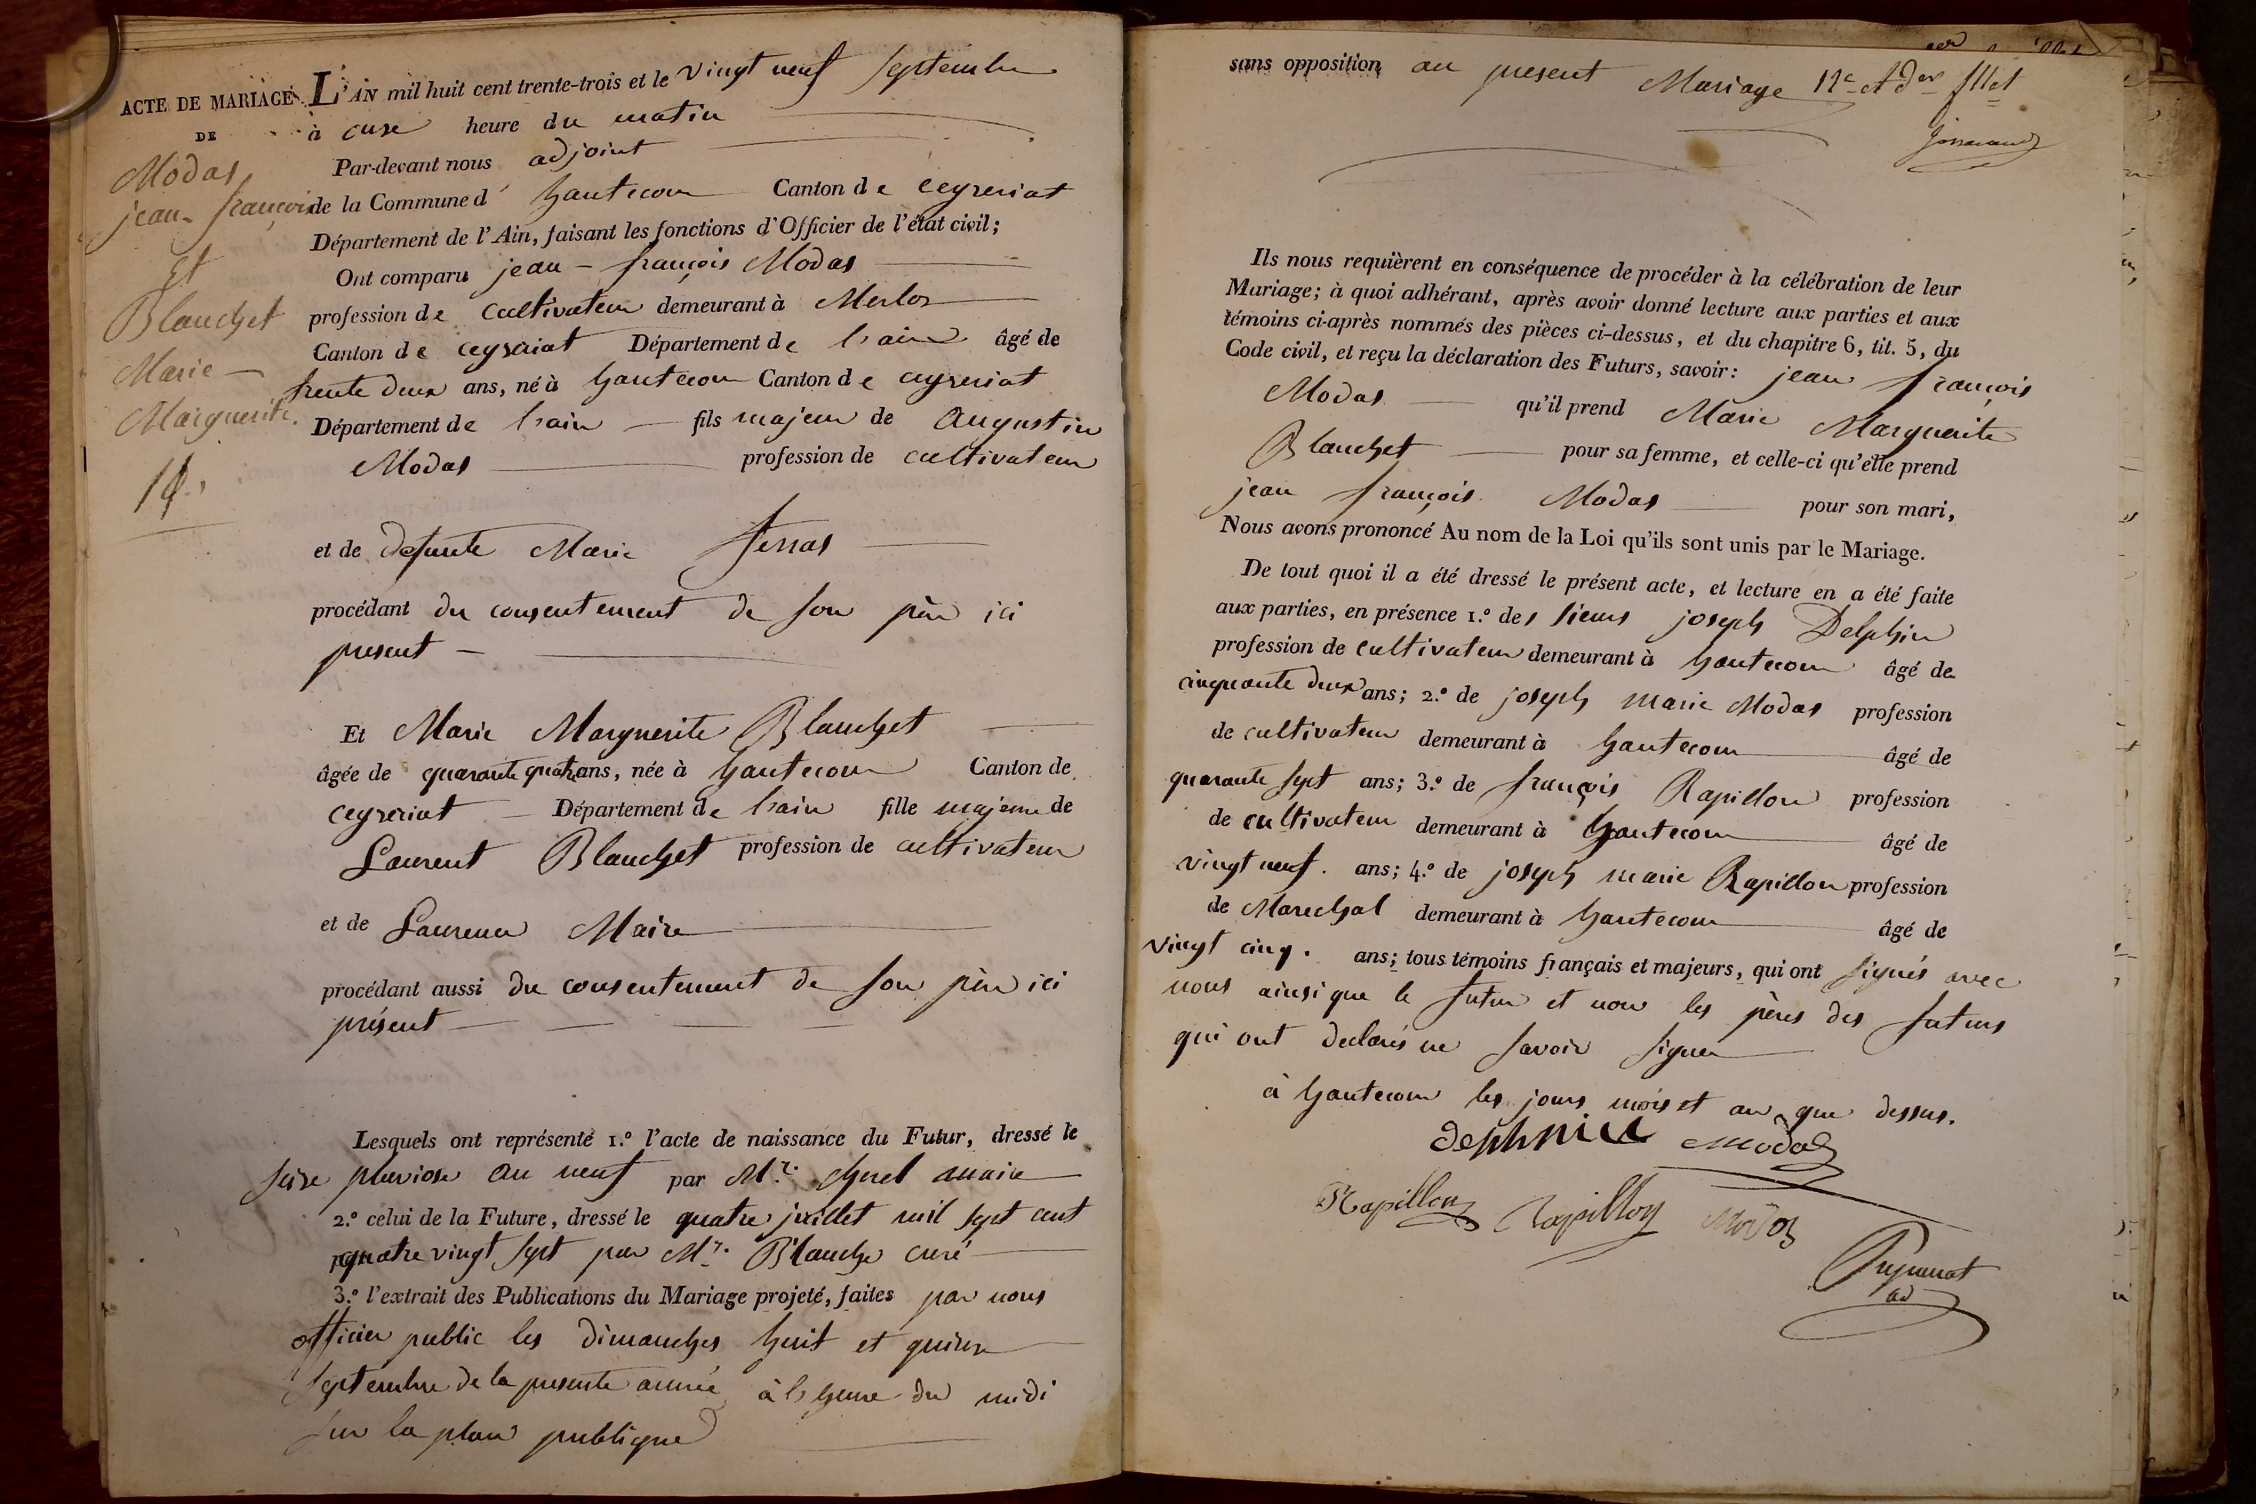 ACTE DE MARIAGE
DE
Modas
jean-françois
Et
Blanchet
Marie-
Marguerite.
14.
L'AN mil huit cent trente-trois et le vingt neuf septembre
à onze heure du matin
Par-devant nous adjoint
de la Commune d'hautecour Canton de ceyzeriat
Département de l'Ain, faisant les fonctions d'Officier de l'état civil;
Ont comparu jean-françois Modas
profession de cultivateur demeurant à Merloz
Canton de ceyzeriat Département de l'ain âgé de
trente deux ans, né à hautecour Canton de ceyzeriat
Département de l'ain fils majeur de augustin
Modas profession de cultivateur
et de defunte Marie ferras
procédant du consentement de son père ici
present
Et Marie Marguerite Blanchet
âgée de quarante quatre ans, née à hautecour Canton de
ceyzeriat Département de l'ain fille majeure de
Laurent Blanchet profession de cultivateur
et de Laurence Maire
procédant aussi du consentement de son père ici
présent
Lesquels ont représenté 1.º l'acte de naissance du Futur, dressé le
seize pluviose an neuf par Mr. maire
2.º celui de la Future, dressé le quatre juillet mil sept cent
quatre vingt sept par Mr. Blanche curé
3.º l'extrait des Publications du Mariage projeté, faites par nous
officier public les dimanches huit et quinze
septembre de la presente année à l'heure du midi
sur la place publique
sans opposition au present Mariage
Ils nous requièrent en conséquence de procéder à la célébration de leur
Mariage; à quoi adhérant, après avoir donné lecture aux parties et aux
témoins ci-après nommés des pièces ci-dessus, et du chapitre 6, tit. 5, du
Code civil, et reçu la déclaration des Futurs, savoir: jean françois
Modas qu'il prend Marie Marguerite
Blanchet pour sa femme, et celle-ci qu'elle prend
jean françois Modas pour son mari,
Nous avons prononcé Au nom de la Loi qu'ils sont unis par le Mariage.
De tout quoi il a été dressé le présent acte, et lecture en a été faite
aux parties, en présence 1.º des sieurs joseph Delphin
profession de cultivateur demeurant à hautecour âgé de
cinquante deux ans; 2.º de joseph marie Modas profession
de cultivateur demeurant à hautecour âgé de
quarante sept ans; 3.º de françois Rapillon profession
de cultivateur demeurant à hautecour âgé de
vingt neuf. ans; 4.º de joseph marie Rapillon profession
de Marechal demeurant à hautecour âgé de
vingt cinq. ans; tous témoins français et majeurs, qui ont signés avec
nous ainsi que le futur et non les pères des futurs
qui ont declarés ne savoir signer
à hautecour les jours mois et an que dessus.
Modas
Rapillon Rapillon Modas
ad